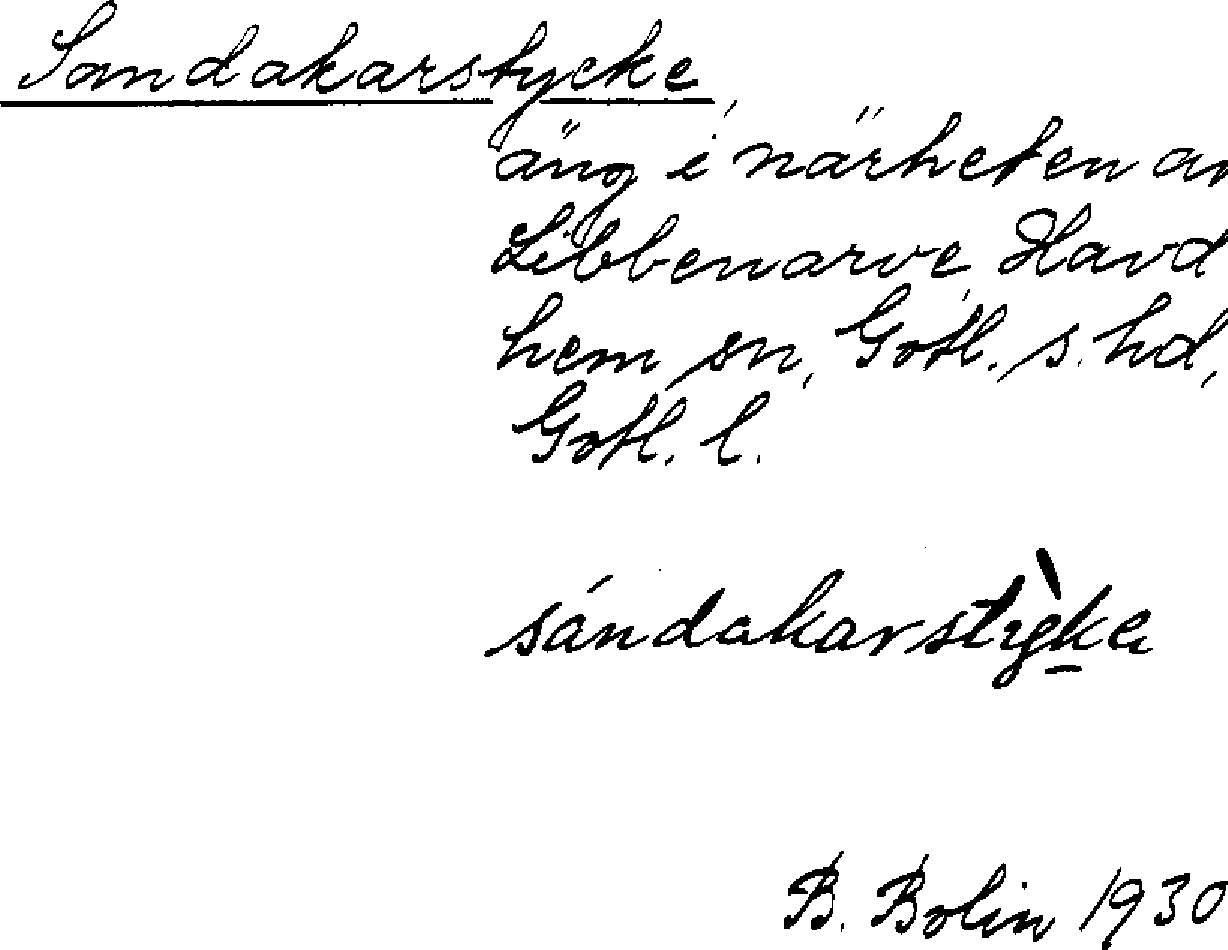 Sandakarstycke,
äng i närheten av
Libbenarve, Havd
hem sn, Gotl. s. hd,
Gotl. l.
sándakarstỳka
B. Bolin 1930